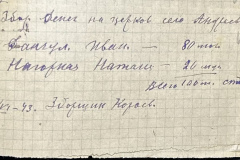 Збор. Денег на церков село Андреев
Вангул. Иван. — 80 мил
Нагорная Наталя — 20 мил
Всего 100 м. ст
43. Зборщик Козаев.